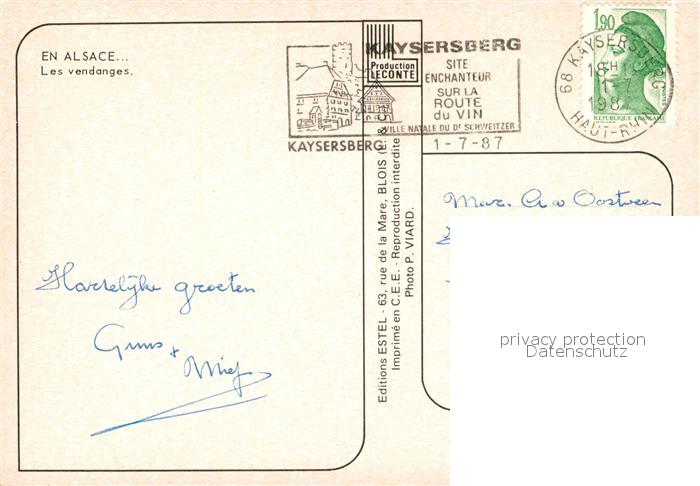 EN ALSACE...
Les vendanges.
Production
LECONTE
KAYSERSBERG
KAYSERSBERG
SITE
ENCHANTEUR
SUR LA
ROUTE
du VIN
VILLE NATALE DU Dr SCHWEITZER
1-7-87
1,90
REPUBLIQUE FRANÇAISE
68 KAYSERSBERG
18H
1-7
1987
HAUT-RHIN
Editions ESTEL - 63, rue de la Mare, BLOIS
Imprimé en C.E.E. - Reproduction interdite
Photo P. VIARD.
Oostveen
Hartelijke groeten
Guus +
Miep
privacy protection
Datenschutz